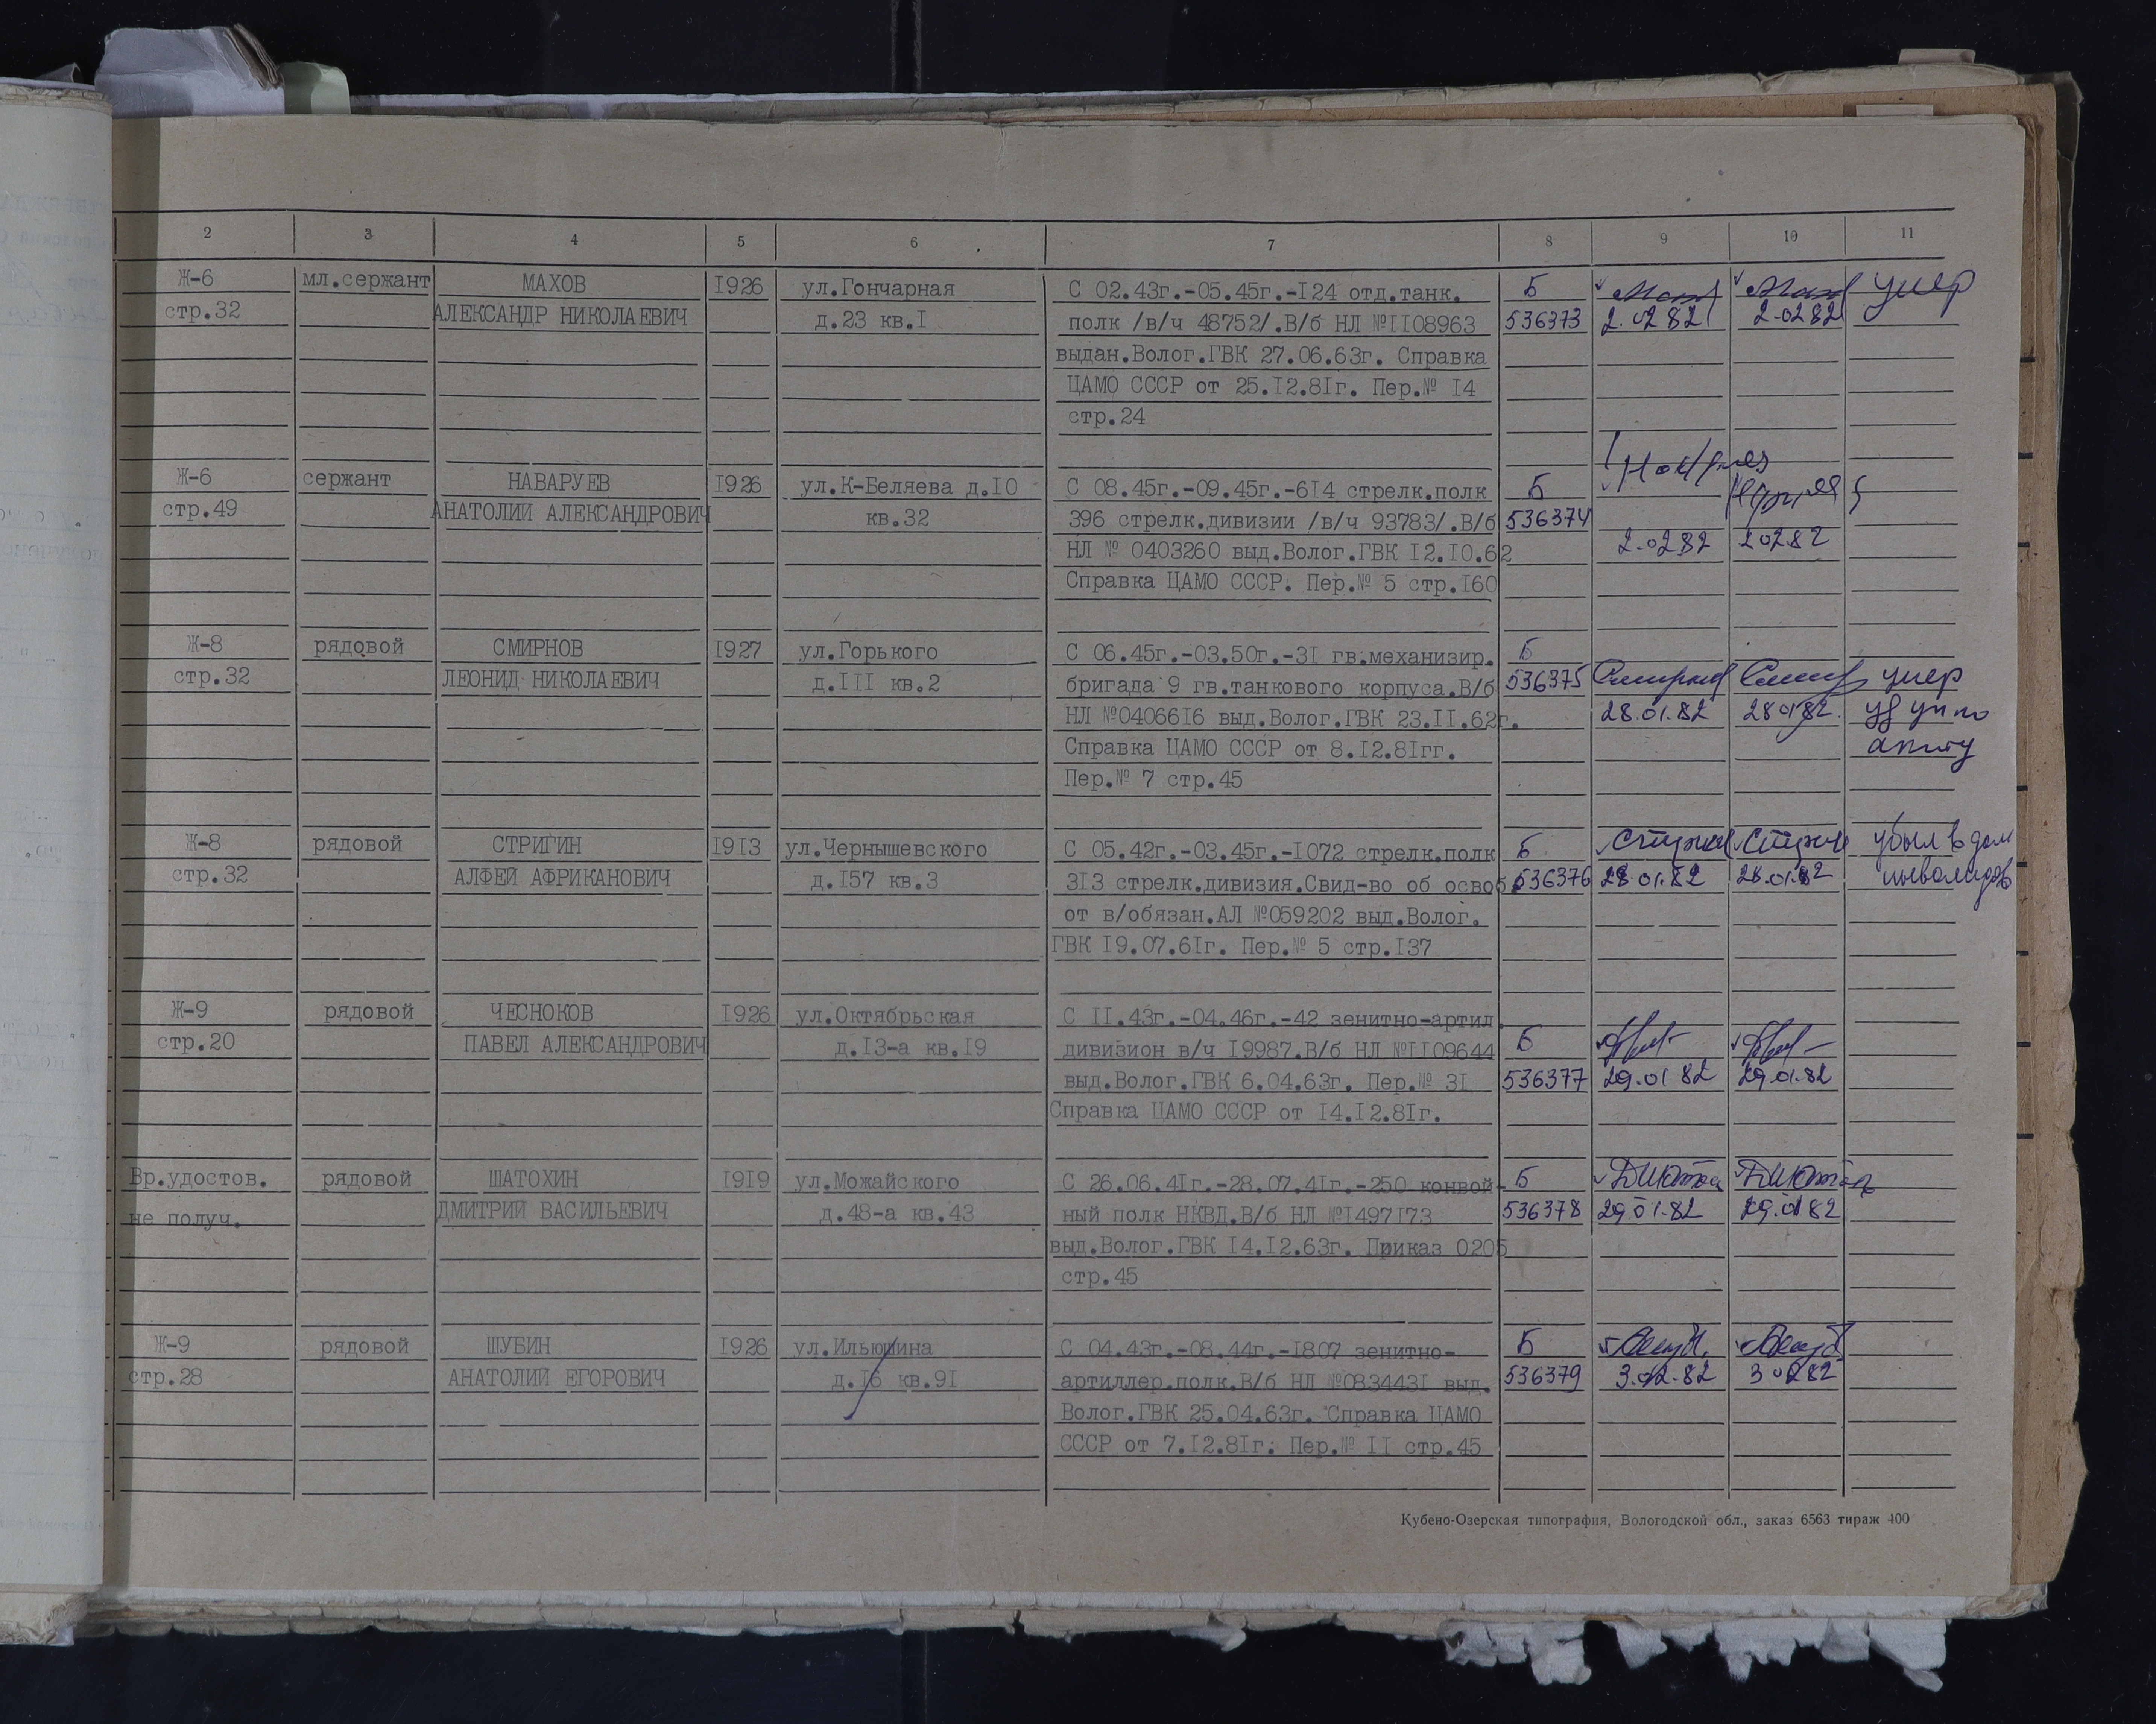 2 3 4 5 6 7 8 9 10 11
Ж-6 мл.сержант МАХОВ I926 ул.Гончарная С 02.43г.-05.45г.-I24 отд.танк. Б умер
стр.32 АЛЕКСАНДР НИКОЛАЕВИЧ д.23 кв.I полк /в/ч 48752/.В/б НЛ №II08963 536373 2.02 82 2.02 82
выдан.Волог.ГВК 27.06.63г. Справка
ЦАМО СССР от 25.I2.8Iг. Пер.№ I4
стр.24
Ж-6 сержант НАВАРУЕВ I926 ул.К-Беляева д.IO С 08.45г.-09.45г.-6I4 стрелк.полк Б
стр.49 АНАТОЛИЙ АЛЕКСАНДРОВИЧ кв.32 396 стрелк.дивизии /в/ч 93783/.В/б 536374
НЛ № 0403260 выд.Волог.ГВК I2.I0.62 2.02 82 2 02 82
Справка ЦАМО СССР. Пер.№ 5 стр.I60
Ж-8 рядовой СМИРНОВ I927 ул.Горького С 06.45г.-03.50г.-3I гв.механизир. Б
стр.32 ЛЕОНИД НИКОЛАЕВИЧ д.III кв.2 бригада 9 гв.танкового корпуса.В/б 536375 умер
НЛ №04066I6 выд.Волог.ГВК 23.II.62г. 28.01.82 28 01 82
Справка ЦАМО СССР от 8.I2.8Iгг.
Пер.№ 7 стр.45
Ж-8 рядовой СТРИГИН I9I3 ул.Чернышевского С 05.42г.-03.45г.-I072 стрелк.полк Б убыл в дом
стр.32 АЛФЕЙ АФРИКАНОВИЧ д.I57 кв.3 3I3 стрелк.дивизия.Свид-во об освоб. 536376 28.01.82 28.01.82 инвалидов
от в/обязан.АЛ №059202 выд.Волог.
ГВК I9.07.6Iг. Пер.№ 5 стр.I37
Ж-9 рядовой ЧЕСНОКОВ I926 ул.Октябрьская С II.43г.-04.46г.-42 зенитно-артил.
стр.20 ПАВЕЛ АЛЕКСАНДРОВИЧ д.I3-а кв.I9 дивизион в/ч I9987.В/б НЛ №II09644 Б
выд.Волог.ГВК 6.04.63г. Пер.№ 3I 536377 29.01 82 29.01.82
Справка ЦАМО СССР от I4.I2.8Iг.
Вр.удостов. рядовой ШАТОХИН I9I9 ул.Можайского С 26.06.4Iг.-28.07.4Iг.-250 конвой- Б
не получ. ДМИТРИЙ ВАСИЛЬЕВИЧ д.48-а кв.43 ный полк НКВД.В/б НЛ №I497I73 536378 29 01.82 29.01 82
выд.Волог.ГВК I4.I2.63г. Приказ 0205
стр.45
Ж-9 рядовой ШУБИН I926 ул.Ильюшина С 04.43г.-08.44г.-I807 зенитно- Б
стр.28 АНАТОЛИЙ ЕГОРОВИЧ д.I6 кв.9I артиллер.полк.В/б НЛ №083443I выд. 536379 3.02.82 3 02 82
Волог.ГВК 25.04.63г. Справка ЦАМО
СССР от 7.I2.8Iг. Пер.№ II стр.45
Кубено-Озерская типография, Вологодской обл., заказ 6563 тираж 400